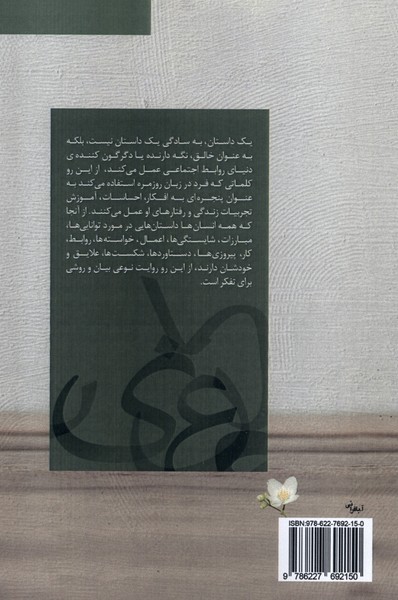 یک داستان، به سادگی یک داستان نیست، بلکه
به عنوان خالق، نگه دارنده یا دگرگون کننده ی
دنیای روابط اجتماعی عمل می‌کند، از این رو
کلماتی که فرد در زبان روزمره استفاده می‌کند به
عنوان پنجره‌ای به افکار، احساسات، آموزش
تجربیات زندگی و رفتارهای او عمل می‌کنند. از آنجا
که همه انسان‌ها داستان‌هایی در مورد توانایی‌ها،
مبارزات، شایستگی‌ها، اعمال، خواسته‌ها، روابط،
کار، پیروزی‌ها، دستاوردها، شکست‌ها، علایق و
خودشان دارند، از این رو روایت نوعی بیان و روشی
برای تفکر است.
ISBN:978-622-7692-15-0
9 786227 692150